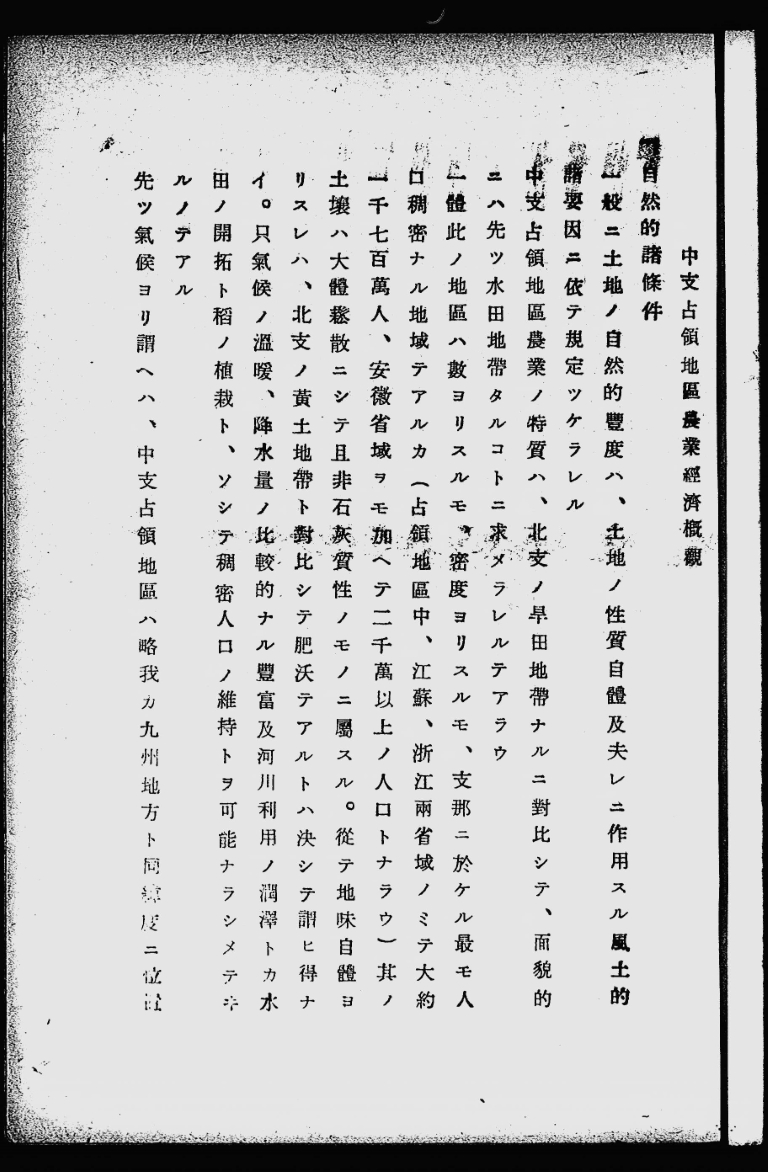 中支占領地區農業經濟槪觀
自然的諸條件
一般ニ土地ノ自然的豐度ハ、土地ノ性質自體及夫レニ作用スル風土的
諸要因ニ依テ規定ツケラレル
中支占領地區農業ノ特質ハ、北支ノ旱田地帶ナルニ對比シテ、面貌的
ニハ先ツ水田地帶タルコトニ求メラレルテアラウ
一體此ノ地區ハ數ヨリスルモ、密度ヨリスルモ、支那ニ於ケル最モ人
口稠密ナル地域テアルカ（占領地區中、江蘇、浙江兩省域ノミテ大約
一千七百萬人、安徽省域ヲモ加ヘテ二千萬以上ノ人口トナラウ）其ノ
土壤ハ大體鬆散ニシテ且非石灰質性ノモノニ屬スル。從テ地味自體ヨ
リスレハ、北支ノ黃土地帶ト對比シテ肥沃テアルトハ決シテ謂ヒ得ナ
イ。只氣候ノ溫暖、降水量ノ比較的ナル豐富及河川利用ノ潤澤トカ水
田ノ開拓ト稻ノ植栽ト、ソシテ稠密人口ノ維持トヲ可能ナラシメテヰ
ルノテアル
先ツ氣候ヨリ謂ヘハ、中支占領地區ハ略我カ九州地方ト同緯度ニ位置